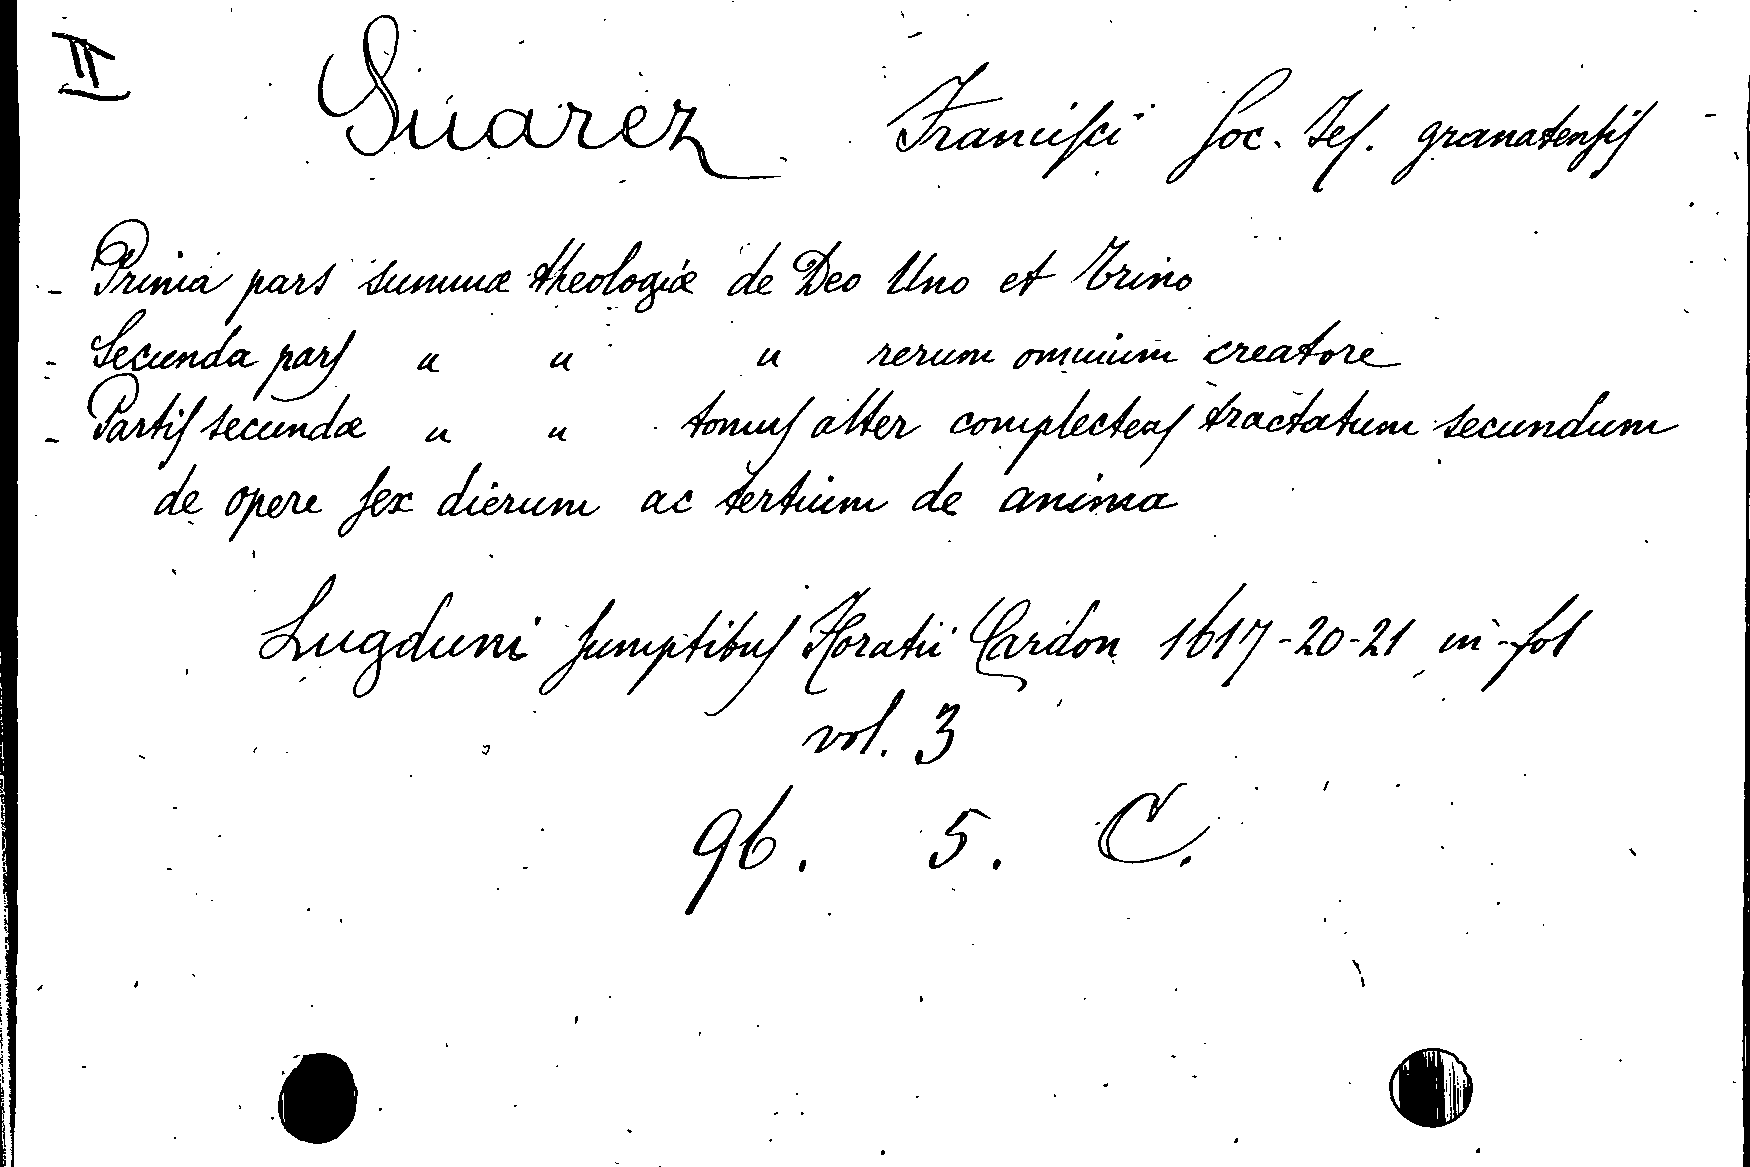 II
Suarez Francisci Soc. Jes. granatensis
- Prima pars summæ theologiæ de Deo Uno et Trino
- Secunda pars " " " rerum omnium creatore
- Partis secundæ " " tomus alter complectens tractatum secundum
de opere sex dierum ac tertium de anima
Lugduni sumptibus Horatii Cardon 1617-20-21 in-fol
vol. 3
96. 5. C.